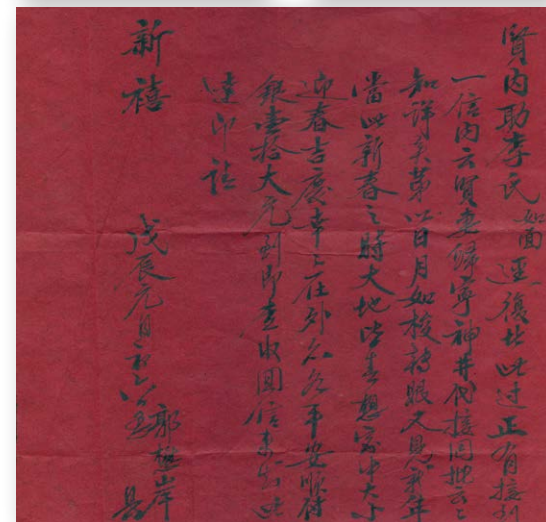 賢內助李氏如面逕復者此过正月接到
一信內云賢妻歸寧神井代接回批云云
知詳矣第以日月如梭轉眼又見新年
當此新春之時大地皆春想家中大小
迎春吉慶幸也在外亦各平安順付
銀壹拾大元到即查收回信來知此
達即請
新禧
戊辰元月初六日 郭懋岸